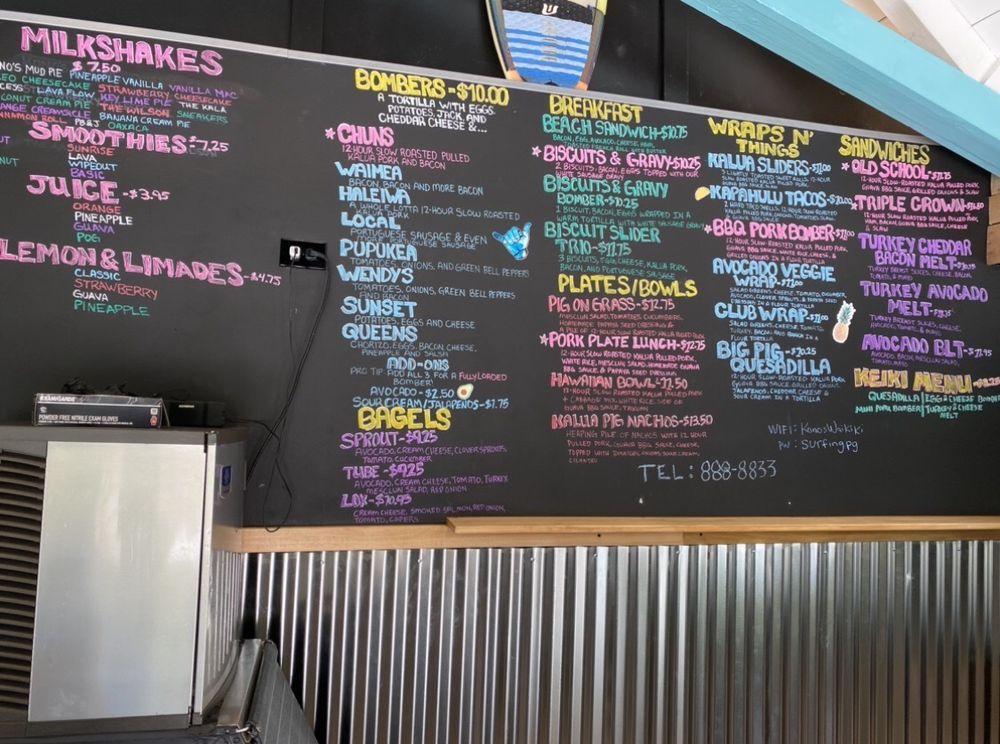 MILKSHAKES
$7.50
NO'S MUD PIE PINEAPPLE VANILLA VANILLA MAC
EO CHEESECAKE STRAWBERRY CHEESECAKE
CESS LAVA FLOW KEY LIME PIE THE KALA
CONUT CREAM PIE THE WILSON SNEAKERS
ANGE CREAMSICLE BANANA CREAM PIE
NNAMON ROLL PB&J OAXACA
SMOOTHIES-7.25
SUNRISE
LAVA
WIPEOUT
BASIC
JUICE-$3.95
ORANGE
PINEAPPLE
GUAVA
POG
LEMON & LIMADES-$4.75
CLASSIC
STRAWBERRY
GUAVA
PINEAPPLE
BOMBERS-$10.00
A TORTILLA WITH EGGS,
POTATOES, JACK, AND
CHEDDAR CHEESE &...
*CHUNS
12-HOUR SLOW ROASTED PULLED
KALUA PORK AND BACON
WAIMEA
BACON, BACON, AND MORE BACON
HALEIWA
A WHOLE LOTTA 12-HOUR SLOW ROASTED
KALUA PORK
LOCAL
PORTUGUESE SAUSAGE & EVEN
PORTUGUESE SAUSAGE
PUPUKEA
TOMATOES, ONIONS, AND GREEN BELL PEPPERS
WENDYS
TOMATOES, ONIONS, GREEN BELL PEPPERS
AND BACON
SUNSET
POTATOES, EGGS AND CHEESE
QUEENS
CHORIZO, EGGS, BACON, CHEESE,
PINEAPPLE AND SALSA
ADD-ONS
PRO TIP: ADD ALL 3 FOR A FULLY LOADED
BOMBER!
AVOCADO-$2.50
SOUR CREAM/JALAPENOS-$1.75
BAGELS
SPROUT-$9.25
AVOCADO, CREAM CHEESE, CLOVER SPROUTS,
TOMATO, CUCUMBER
TUBE-$9.25
AVOCADO, CREAM CHEESE, TOMATO, TURKEY,
MESCLUN SALAD, RED ONION
LOX-$10.95
CREAM CHEESE, SMOKED SALMON, RED ONION,
TOMATO, CAPERS
BREAKFAST
BEACH SANDWICH-$10.75
BACON, EGG, AVOCADO, CHEESE, MAYO,
TOASTED FRENCH ROLL WITH BUTTER
*BISCUITS & GRAVY-$10.25
2 BISCUITS, BACON, EGGS TOPPED WITH OUR
WHITE SAUSAGE GRAVY
BISCUITS & GRAVY
BOMBER-$10.25
1 BISCUIT, BACON, EGGS WRAPPED IN A
WARM TORTILLA WITH WHITE SAUSAGE GRAVY
BISCUIT SLIDER
TRIO-$11.75
3 BISCUITS, EGGS, CHEESE, KALUA PORK,
BACON, AND PORTUGUESE SAUSAGE
PLATES/BOWLS
PIG ON GRASS-$12.75
MESCLUN SALAD, TOMATOES, CUCUMBERS,
HOMEMADE PAPAYA SEED DRESSING &
A PILE OF 12-HOUR SLOW ROASTED KALUA PORK
*PORK PLATE LUNCH-$12.75
12-HOUR SLOW ROASTED KALUA PULLED PORK,
WHITE RICE, MESCLUN SALAD, HOMEMADE GUAVA
BBQ SAUCE, & PAPAYA SEED DRESSING
HAWAIIAN BOWL-11.50
12-HOUR SLOW ROASTED KALUA PULLED PORK
+ CABBAGE MIX, WHITE RICE, SIDE OF
GUAVA BBQ SAUCE
KALUA PIG NACHOS-$13.50
HEAPING PILE OF NACHOS WITH 12 HOUR
PULLED PORK, GUAVA BBQ SAUCE, CHEESE,
TOPPED WITH TOMATOES, ONIONS, SOUR CREAM,
CILANTRO
TEL: 888-8833
WRAPS N'
THINGS
KALUA SLIDERS-$11.00
3 LIGHTLY TOASTED SWEET ROLLS, 12-HOUR
SLOW ROASTED KALUA PULLED PORK,
GUAVA BBQ SAUCE, SLAW
KAPAHULU TACOS-$12.00
*BBQ PORK BOMBER-$11.00
12-HOUR SLOW-ROASTED KALUA PULLED PORK,
GUAVA BBQ SAUCE, WHITE RICE, CHEESE, &
GRILLED ONIONS IN A FLOUR TORTILLA
AVOCADO VEGGIE
WRAP-$11.00
CLUB WRAP-$11.00
SALAD GREENS, CHEESE, TOMATO,
TURKEY, BACON, AND RANCH IN A
FLOUR TORTILLA
BIG PIG-$10.25
QUESADILLA
12-HOUR SLOW-ROASTED KALUA PORK,
GUAVA BBQ SAUCE, GRILLED ONION,
JALAPENOS, CHEDDAR CHEESE &
SOUR CREAM IN A TORTILLA
WIFI: KonosWaikiki
PW: Surfingpg
SANDWICHES
*OLD SCHOOL-$11.75
12-HOUR SLOW-ROASTED KALUA PULLED PORK,
GUAVA BBQ SAUCE, GRILLED ONIONS & SLAW
*TRIPLE CROWN-$11.50
12-HOUR SLOW ROASTED KALUA PULLED PORK,
HAM, BACON, GUAVA BBQ SAUCE, CHEESE,
& SLAW
TURKEY CHEDDAR
BACON MELT
TURKEY BREAST SLICES, CHEESE, BACON,
TURKEY AVOCADO
MELT
TURKEY BREAST SLICES, CHEESE,
AVOCADO BLT-$11.75
BACON, AVOCADO, MESCLUN SALAD,
TOMATO, MAYO
KEIKI MENU
QUESADILLA | EGG & CHEESE BOMBER
MINI PORK BOMBER | TURKEY & CHEESE
MELT
EXAMGARDE
POWDER FREE NITRILE EXAM GLOVES